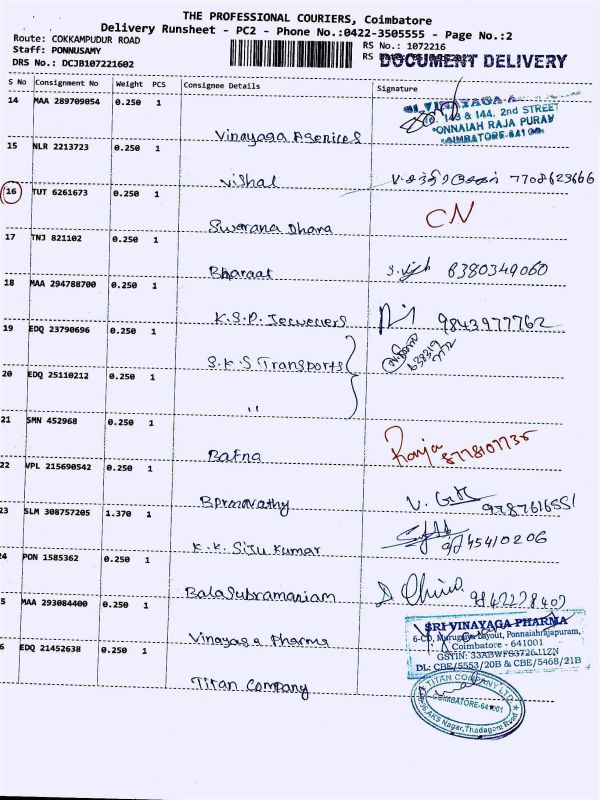 THE PROFESSIONAL COURIERS, Coimbatore
Delivery Runsheet - PC2 - Phone No.:0422-3505555 - Page No.:2
Route: COKKAMPUDUR ROAD
Staff: PONNUSAMY
DRS No.: DCJB107221602
RS No.: 1072216
RS
DOCUMENT DELIVERY
S No Consignment No Weight PCS Consignee Details Signature
14 MAA 289709054 0.250 1
143 & 144, 2nd STREET
PONNAIAH RAJA PURAM
COIMBATORE-641001
Vinayaga Agencies
15 NLR 2213723 0.250 1
Vishal 7708623666
16 TUT 6261673 0.250 1
CN
Swarana Dhara
17 TNJ 821102 0.250 1
Bharat 8380349060
18 MAA 294788700 0.250 1
K.S.P. Jewellers 9843977762
19 EDQ 23790696 0.250 1
S.K.S Transports
20 EDQ 25110212 0.250 1
"
21 SMN 452968 0.250 1
Rafna Raja 8778107735
22 VPL 215690542 0.250 1
9787616551
23 SLM 308757205 1.370 1
K.K. Siju Kumar 9245410206
24 PON 1585362 0.250 1
Balasubramaniam
5 MAA 293084400 0.250 1
Vinayaga Pharma
SRI VINAYAGA PHARMA
6-CD, Murugaiya Layout, Ponnaiahrajapuram,
Coimbatore - 641001
GSTIN: 33ABWFS3726J1ZN
DL: CBE/5553/20B & CBE/5468/21B
6 EDQ 21452638 0.250 1
Titan Company
TITAN COMPANY LTD
COIMBATORE-641001
AKS Nagar, Thadagam Road